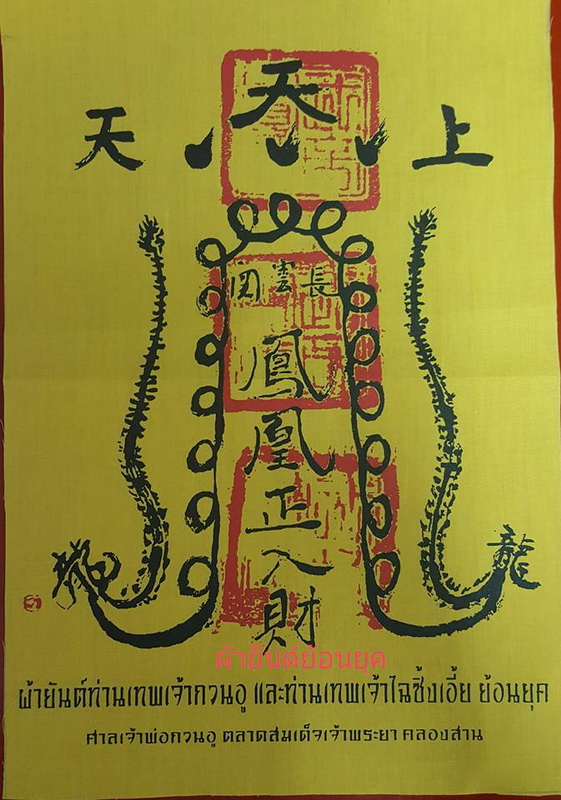 天
天 上
長雲図
鳳
凰
正
入
財
龍
ผ้ายันต์ย้อนยุค
ผ้ายันต์ท่านเทพเจ้ากวนอู และท่านเทพเจ้าไฉซิ้งเอี้ย ย้อนยุค
ศาลเจ้าพ่อกวนอู ตลาดสมเด็จเจ้าพระยา คลองสาน